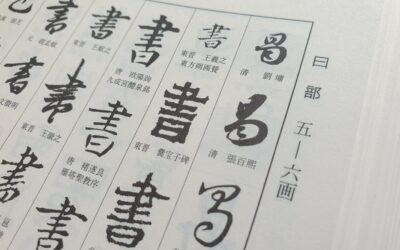 曰部 五—六画
曷
清 劉墉
曷
清 張百熙
曷
書
東晋 王羲之
東方朔画賛
書
東晋 爨宝子碑
書
書
唐 欧陽詢
九成宮醴泉銘
書
唐 褚遂良
雁塔聖教序
書
書
東晋 王羲之
書
東晋 王羲之
書
書
元 趙孟頫